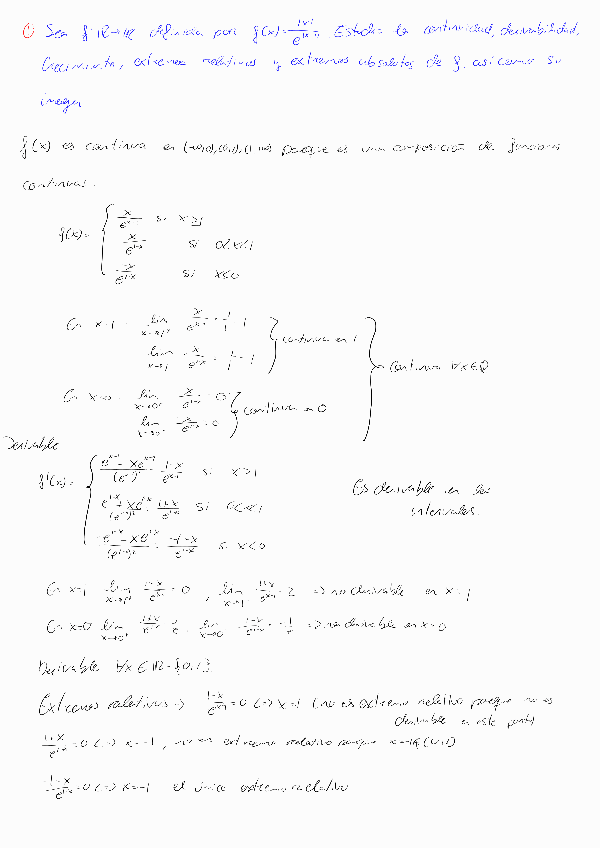 ① Sea f: ℝ→ℝ definida por f(x) = |x|/e^|x-1|. Estudia la continuidad, derivabilidad,
Crecimiento, extremos relativos y extremos absolutos de f, así como su
imagen
f(x) es continua en (-∞,0),(0,1),(1,+∞) porque es una composición de funciones
continuas.
f(x) = { x/e^(x-1) si x≥1
x/e^(1-x) si 0<x<1
-x/e^(1-x) si x<0
En x=1 lim x→1⁺ x/e^(x-1) = 1/1 = 1
lim x→1⁻ x/e^(1-x) = 1/1 = 1 } continua en 1
En x=0 lim x→0⁺ x/e^(1-x) = 0
lim x→0⁻ -x/e^(1-x) = 0 } continua en 0
} continua ∀x∈ℝ
Derivable
f'(x) = { (e^(x-1) - xe^(x-1))/(e^(x-1))² = (1-x)/e^(x-1) si x>1
(e^(1-x) + xe^(1-x))/(e^(1-x))² = (1+x)/e^(1-x) si 0<x<1
(-e^(1-x) - xe^(1-x))/(e^(1-x))² = (-1-x)/e^(1-x) si x<0
Es derivable en los
intervalos.
En x=1 lim x→1⁺ (1-x)/e^(x-1) = 0, lim x→1⁻ (1+x)/e^(1-x) = 2 => no derivable en x=1
En x=0 lim x→0⁺ (1+x)/e^(1-x) = 1/e, lim x→0⁻ (-1-x)/e^(1-x) = -1/e => no derivable en x=0
Derivable ∀x∈ℝ-{0,1}
Extremos relativos => (1-x)/e^(x-1) = 0 <=> x=1 (no es extremo relativo porque no es
derivable en este punto)
(1+x)/e^(1-x) = 0 <=> x=-1, no es extremo relativo porque x=-1∉(0,1)
(-1-x)/e^(1-x) = 0 <=> x=-1 el único extremo relativo